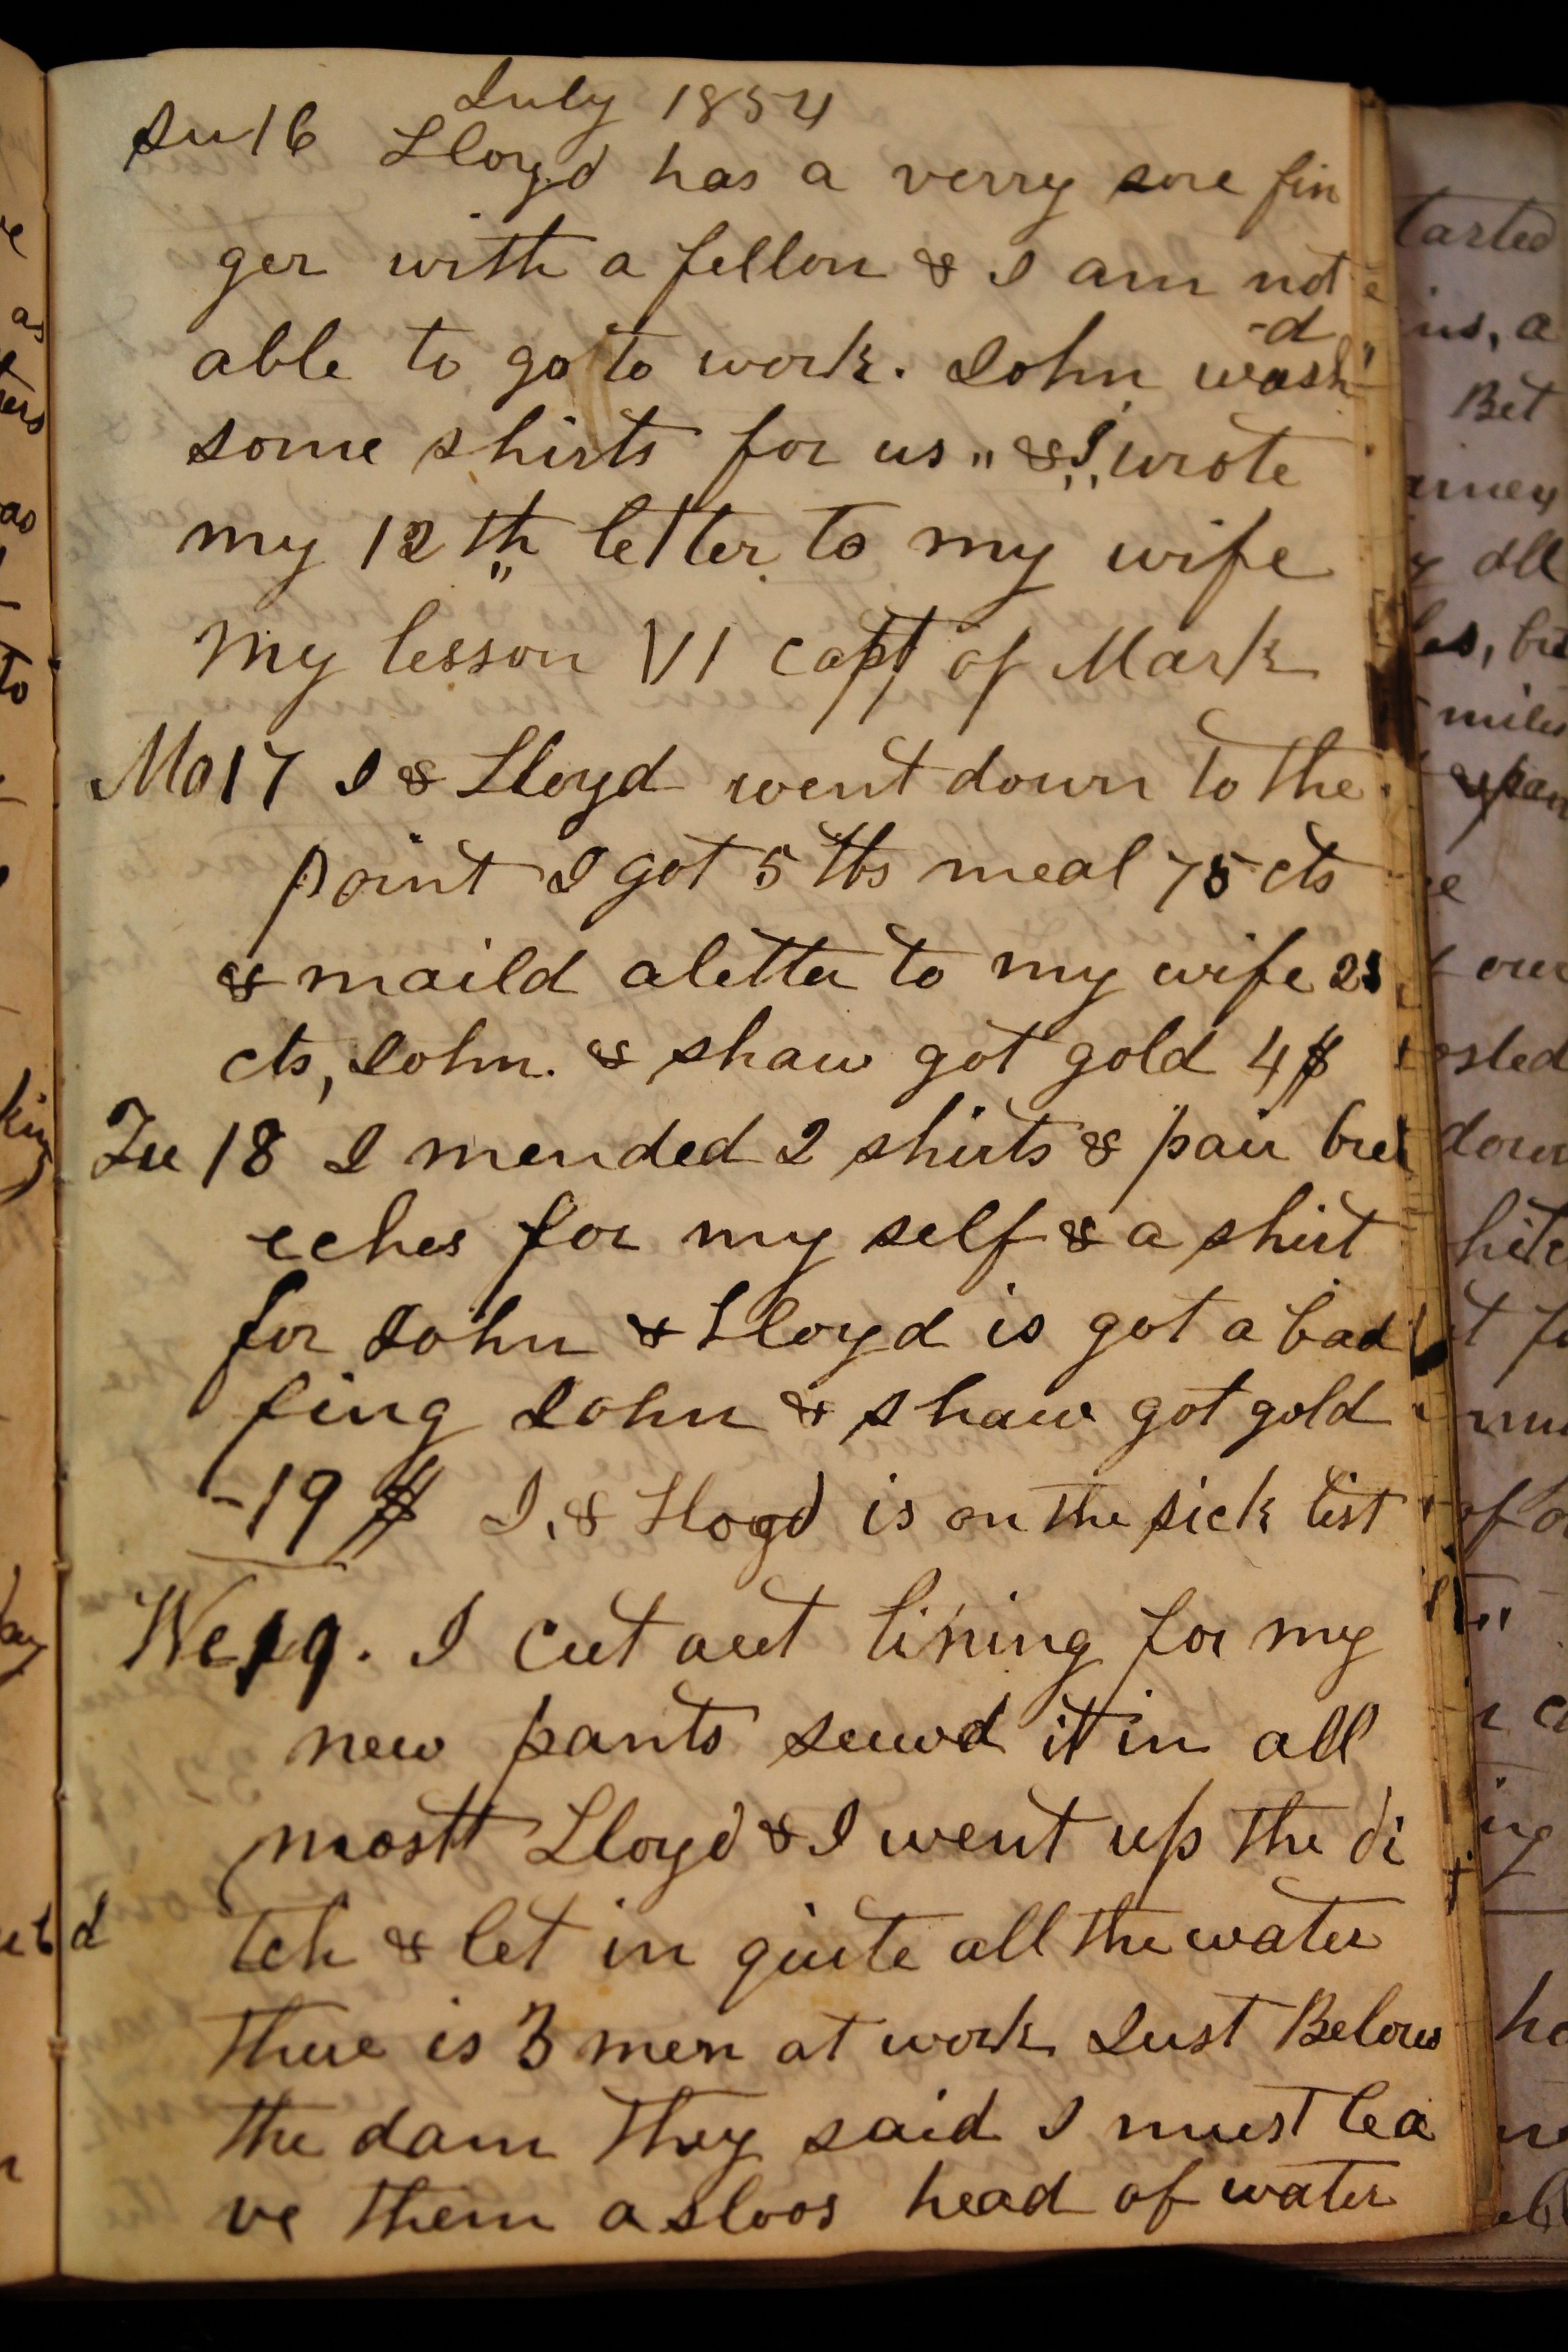 July 1854
Su 16 Lloyd has a verry sore fin
ger with a fellon & I am not
able to go to work. John wash-d
some shirts for us „ & I „ wrote
my 12th letter to my wife
my lesson VI capt of Mark
Mo 17 I & Lloyd went down to the
point I got 5 lbs meal 75 cts
& maild aletter to my wife
cts, John. & shaw got gold 4 $
Tu 18 I mended 2 shirts & pair bre
eches for my self & a shirt
for John & Lloyd is got a bad
fing John & shaw got gold
-19 $ I, & Lloyd is on the sick list
We 19. I cut out lining for my
new pants sewd it in all
mostt Lloyd & I went up the di
tch & let in quite all the water
there is 3 men at work Just Below
the dam They said I must lea
ve them a sloos head of water
tarted
ins, a
Bet
all
miles
our
down